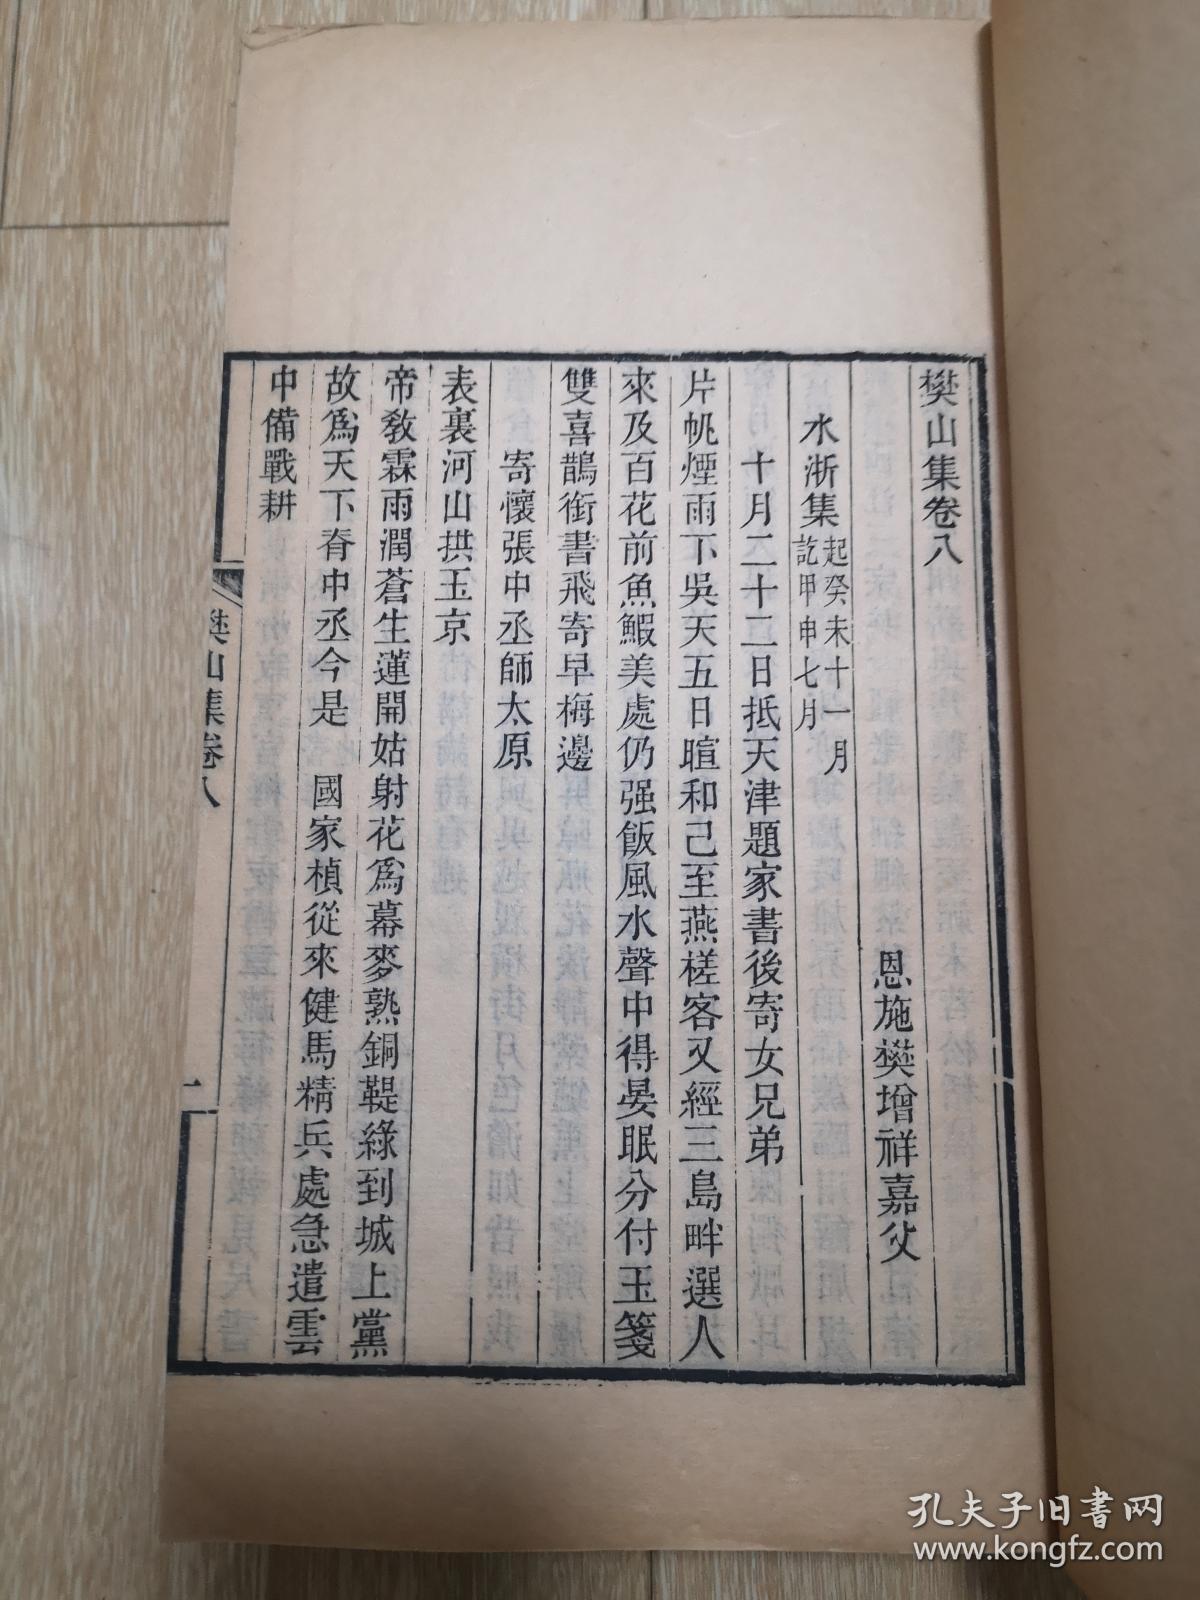 樊山集卷八
恩施樊增祥嘉父
水淅集起癸未十一月
訖甲申七月
十月二十二日抵天津題家書後寄女兄弟
片帆煙雨下吳天五日暄和已至燕槎客又經三島畔選人
來及百花前魚鰕美處仍强飯風水聲中得晏眠分付玉箋
雙喜鵲銜書飛寄早梅邊
寄懷張中丞師太原
表裏河山拱玉京
帝敎霖雨潤蒼生蓮開姑射花爲幕麥熟銅鞮綠到城上黨
故爲天下脊中丞今是 國家楨從來健馬精兵處急遣雲
中備戰耕
樊山集卷八
一
孔夫子旧书网
www.kongfz.com